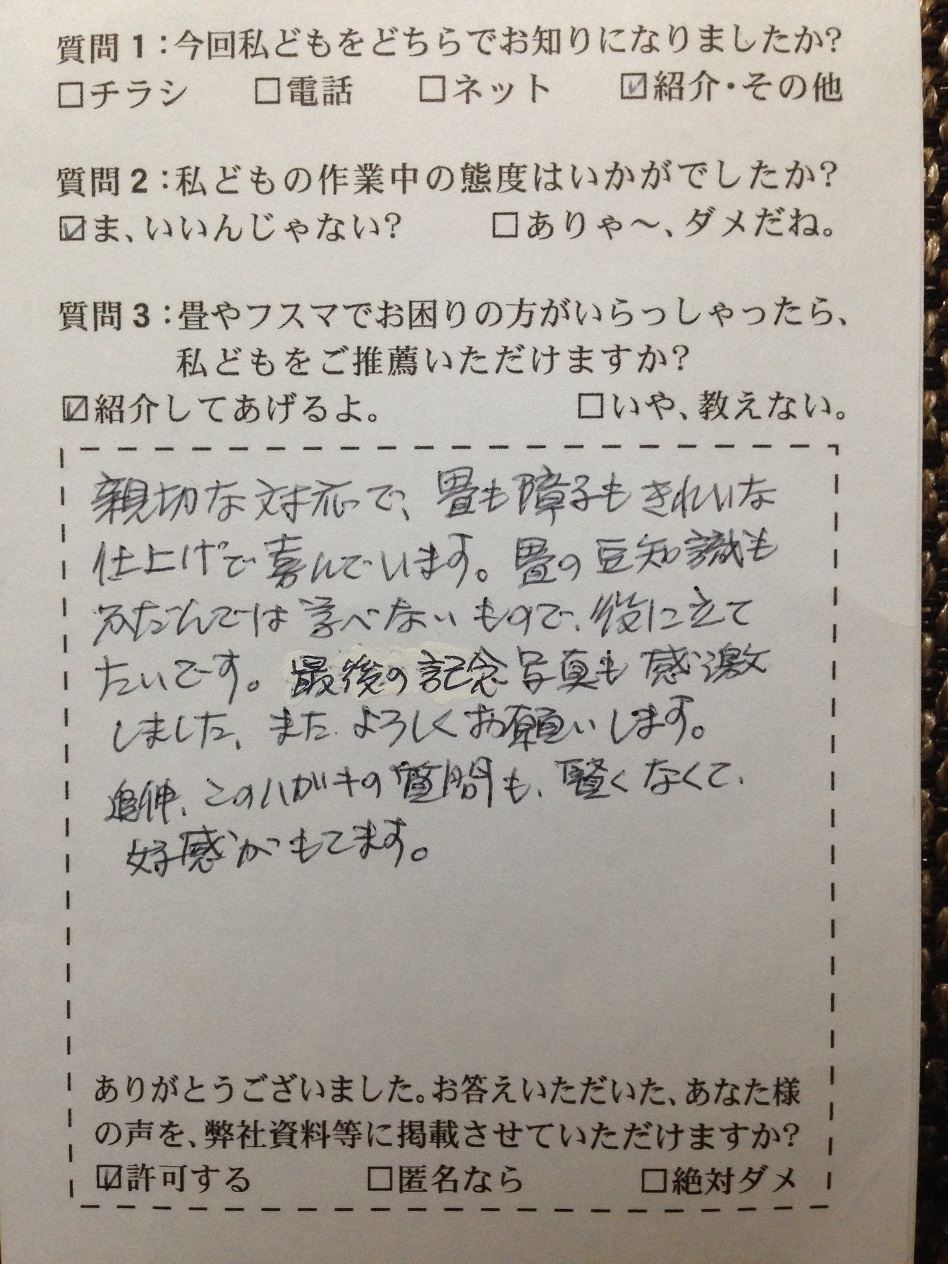 質問1：今回私どもをどちらでお知りになりましたか？
□チラシ　□電話　□ネット　☑紹介・その他
質問2：私どもの作業中の態度はいかがでしたか？
☑ま、いいんじゃない？　□ありゃ〜、ダメだね。
質問3：畳やフスマでお困りの方がいらっしゃったら、
私どもをご推薦いただけますか？
☑紹介してあげるよ。　□いや、教えない。
親切な対応で、畳も障子もきれいな
仕上げで喜んでいます。畳の豆知識も
ふだんでは学べないもので、役に立て
たいです。最後の記念写真も感激
しました、また よろしくお願いします。
追伸、このハガキの質問も、堅くなくて、
好感がもてます。
ありがとうございました。お答えいただいた、あなた様
の声を、弊社資料等に掲載させていただけますか？
☑許可する　□匿名なら　□絶対ダメ